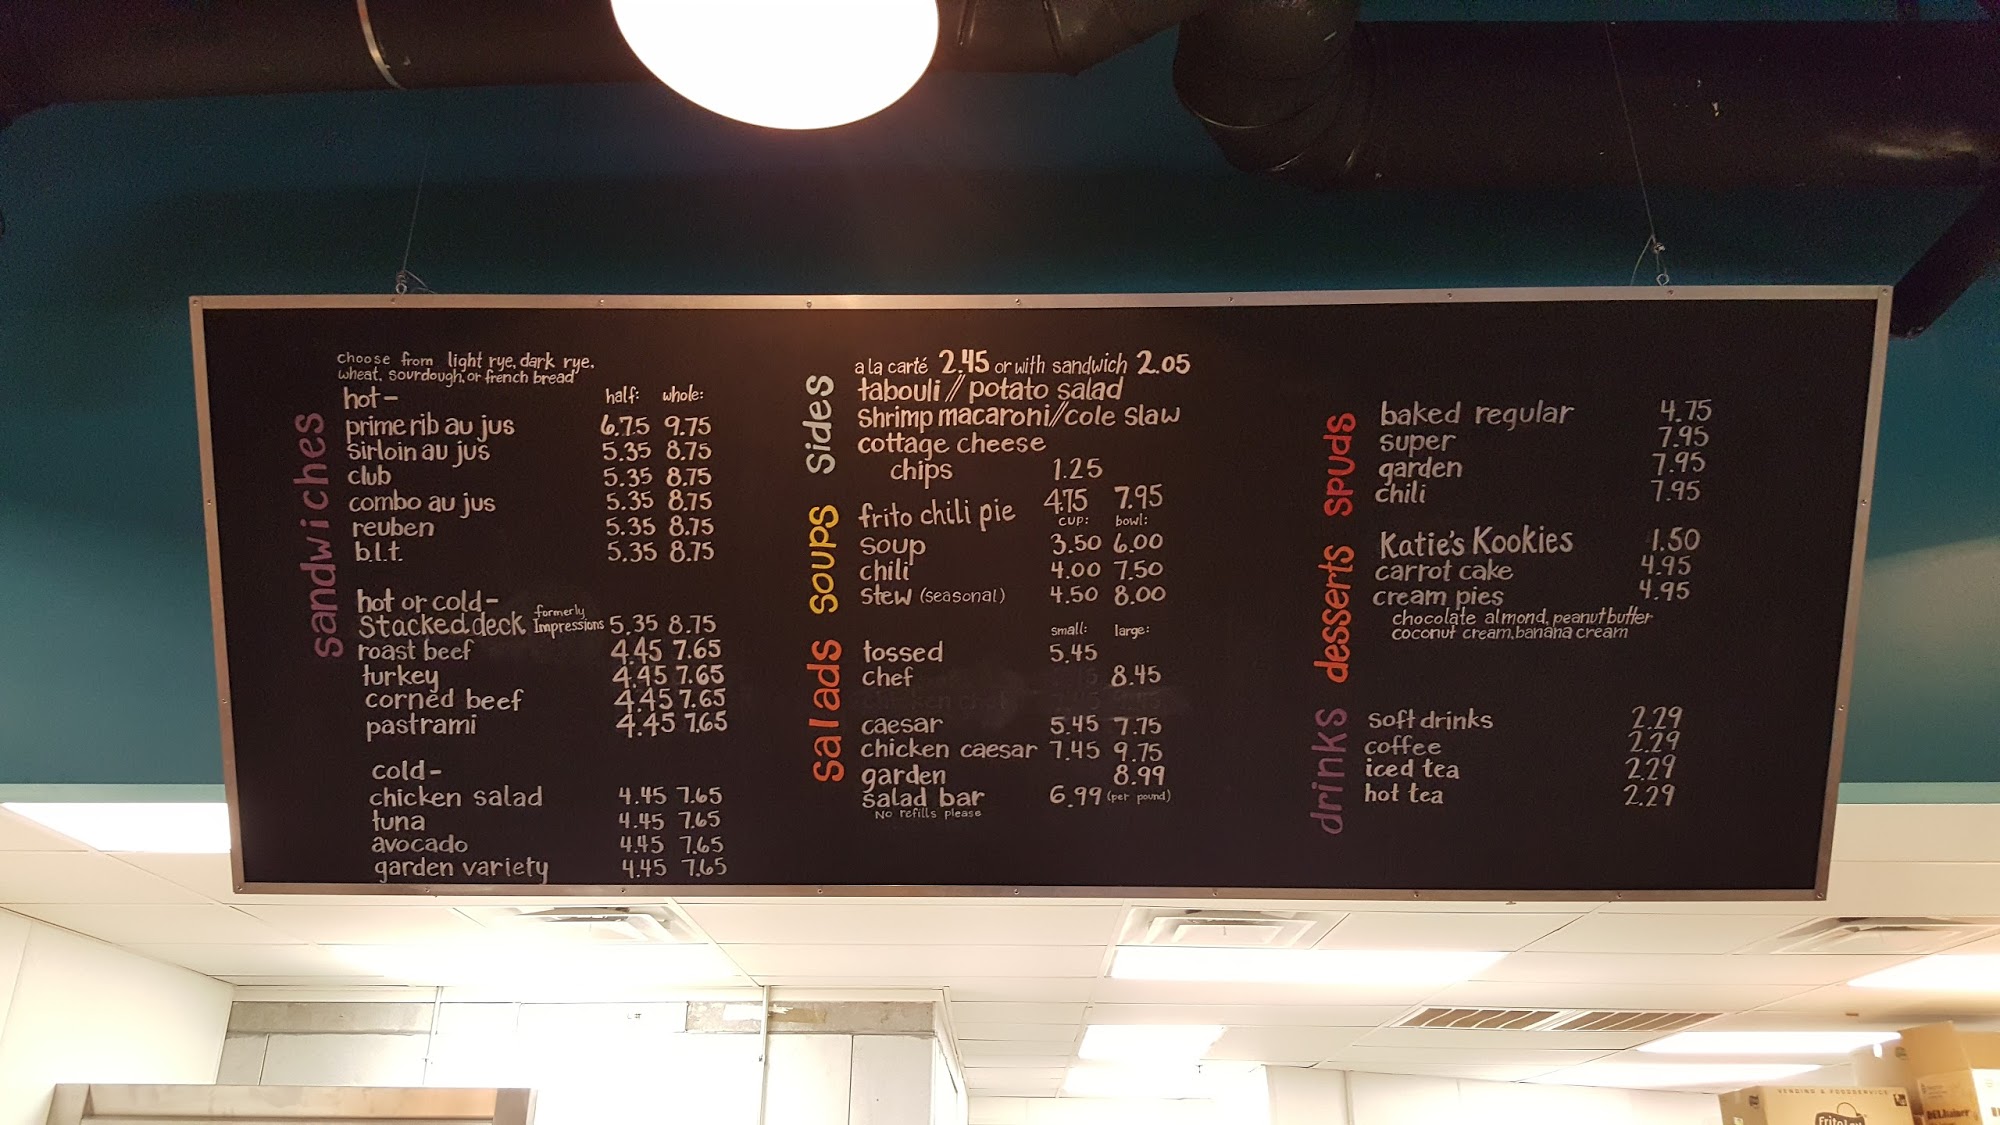 sandwiches
choose from light rye, dark rye,
wheat, sourdough, or french bread
hot- half: whole:
prime rib au jus 6.75 9.75
sirloin au jus 5.35 8.75
club 5.35 8.75
combo au jus 5.35 8.75
reuben 5.35 8.75
b.l.t. 5.35 8.75
hot or cold-
stacked deck formerly Impressions 5.35 8.75
roast beef 4.45 7.65
turkey 4.45 7.65
corned beef 4.45 7.65
pastrami 4.45 7.65
cold-
chicken salad 4.45 7.65
tuna 4.45 7.65
avocado 4.45 7.65
garden variety 4.45 7.65
sides
a la carté 2.45 or with sandwich 2.05
tabouli // potato salad
shrimp macaroni//cole slaw
cottage cheese
chips 1.25
soups
frito chili pie 4.75 7.95
cup: bowl:
soup 3.50 6.00
chili 4.00 7.50
stew (seasonal) 4.50 8.00
salads
small: large:
tossed 5.45
chef 8.45
caesar 5.45 7.75
chicken caesar 7.45 9.75
garden 8.99
salad bar 6.99 (per pound)
No refills please
spuds
baked regular 4.75
super 7.95
garden 7.95
chili 7.95
desserts
Katie's Kookies 1.50
carrot cake 4.95
cream pies 4.95
chocolate almond, peanut butter
coconut cream, banana cream
drinks
soft drinks 2.29
coffee 2.29
iced tea 2.29
hot tea 2.29
VENDING & FOODSERVICE